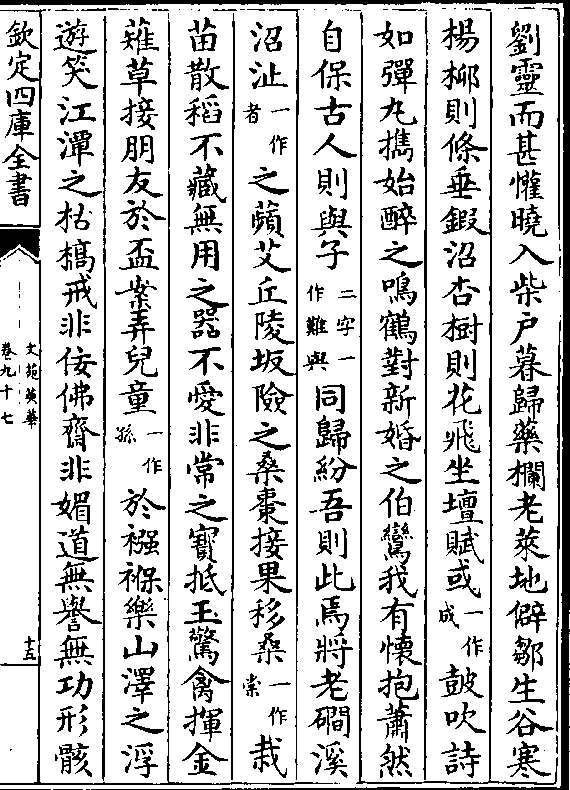 劉靈而甚懽曉入柴户暮歸藥欄老萊地僻鄒生谷寒
楊柳則條垂鍜沼杏樹則花飛坐壇賦或一作成鼓吹詩
如彈丸擕始醉之鳴鶴對新婚之伯鸞我有懷抱蕭然
自保古人則與子二字一作難與同歸紛吾則此焉將老磵溪
沼沚一作者之蘋艾丘陵坂險之桑棗接果移桑一作棠栽
苗散稻不藏無用之器不愛非常之寳抵玉驚禽揮金
薙草接朋友於盃案弄兒童一作孫於襁褓樂山澤之浮
遊笑江潭之枯槁戒非佞佛齋非媚道無譽無功形骸
欽定四庫全書
文苑英華
卷九十七
十五